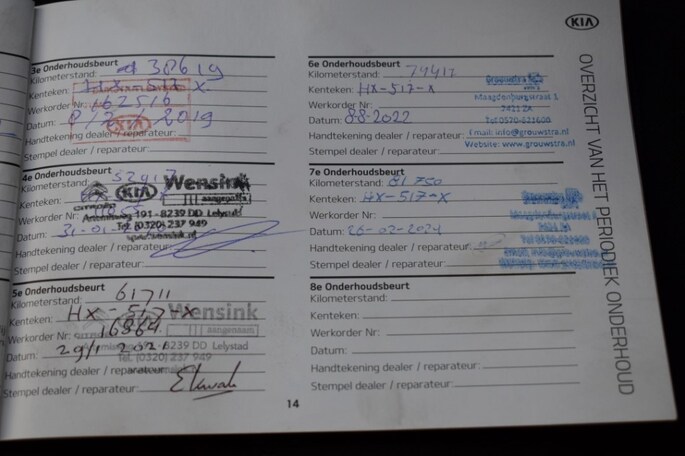 KIA
OVERZICHT VAN HET PERIODIEK ONDERHOUD
3e Onderhoudsbeurt
Kilometerstand: 38619
Kenteken: HX-517-X
Werkorder Nr: 162516
Datum: 2019
KIA
Handtekening dealer / reparateur:
Stempel dealer / reparateur:
4e Onderhoudsbeurt
Kilometerstand:
Kenteken:
KIA Wensink
aangenaam
Werkorder Nr:
191 - 8239 DD Lelystad
Datum: 31-01
Tel. (0320) 237 949
Handtekening dealer / reparateur:
Stempel dealer / reparateur:
5e Onderhoudsbeurt
Kilometerstand: 61711
Kenteken: HX-517-X
Wensink
aangenaam
Werkorder Nr: 16864
8239 DD Lelystad
Datum: 29/1 2021
Tel. (0320) 237 949
Handtekening dealer / reparateur:
Stempel dealer / reparateur:
6e Onderhoudsbeurt
Kilometerstand:
Kenteken: HX-517-X
Grouwstra
Maagdenburgstraat 1
7421 ZA
Werkorder Nr:
Datum: 8-8-2022
Tel 0570-621600
Handtekening dealer / reparateur:
Email: info@grouwstra.nl
Website: www.grouwstra.nl
Stempel dealer / reparateur:
7e Onderhoudsbeurt
Kilometerstand: 81750
Kenteken: HX-517-X
Werkorder Nr:
Datum: 26-02-2024
Handtekening dealer / reparateur:
Stempel dealer / reparateur:
8e Onderhoudsbeurt
Kilometerstand:
Kenteken:
Werkorder Nr:
Datum:
Handtekening dealer / reparateur:
Stempel dealer / reparateur:
14